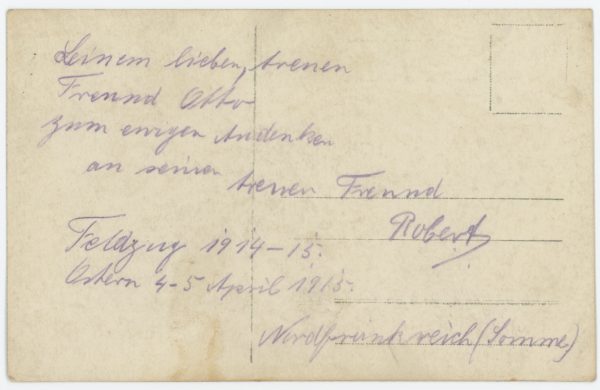 Seinem lieben, treuen
Freund Otto
zum ewigen Andenken
an seinen
treuen Freund
Robert
Feldzug 1914-15.
Ostern 4-5 April 1915.
Nordfrankreich (Somme)